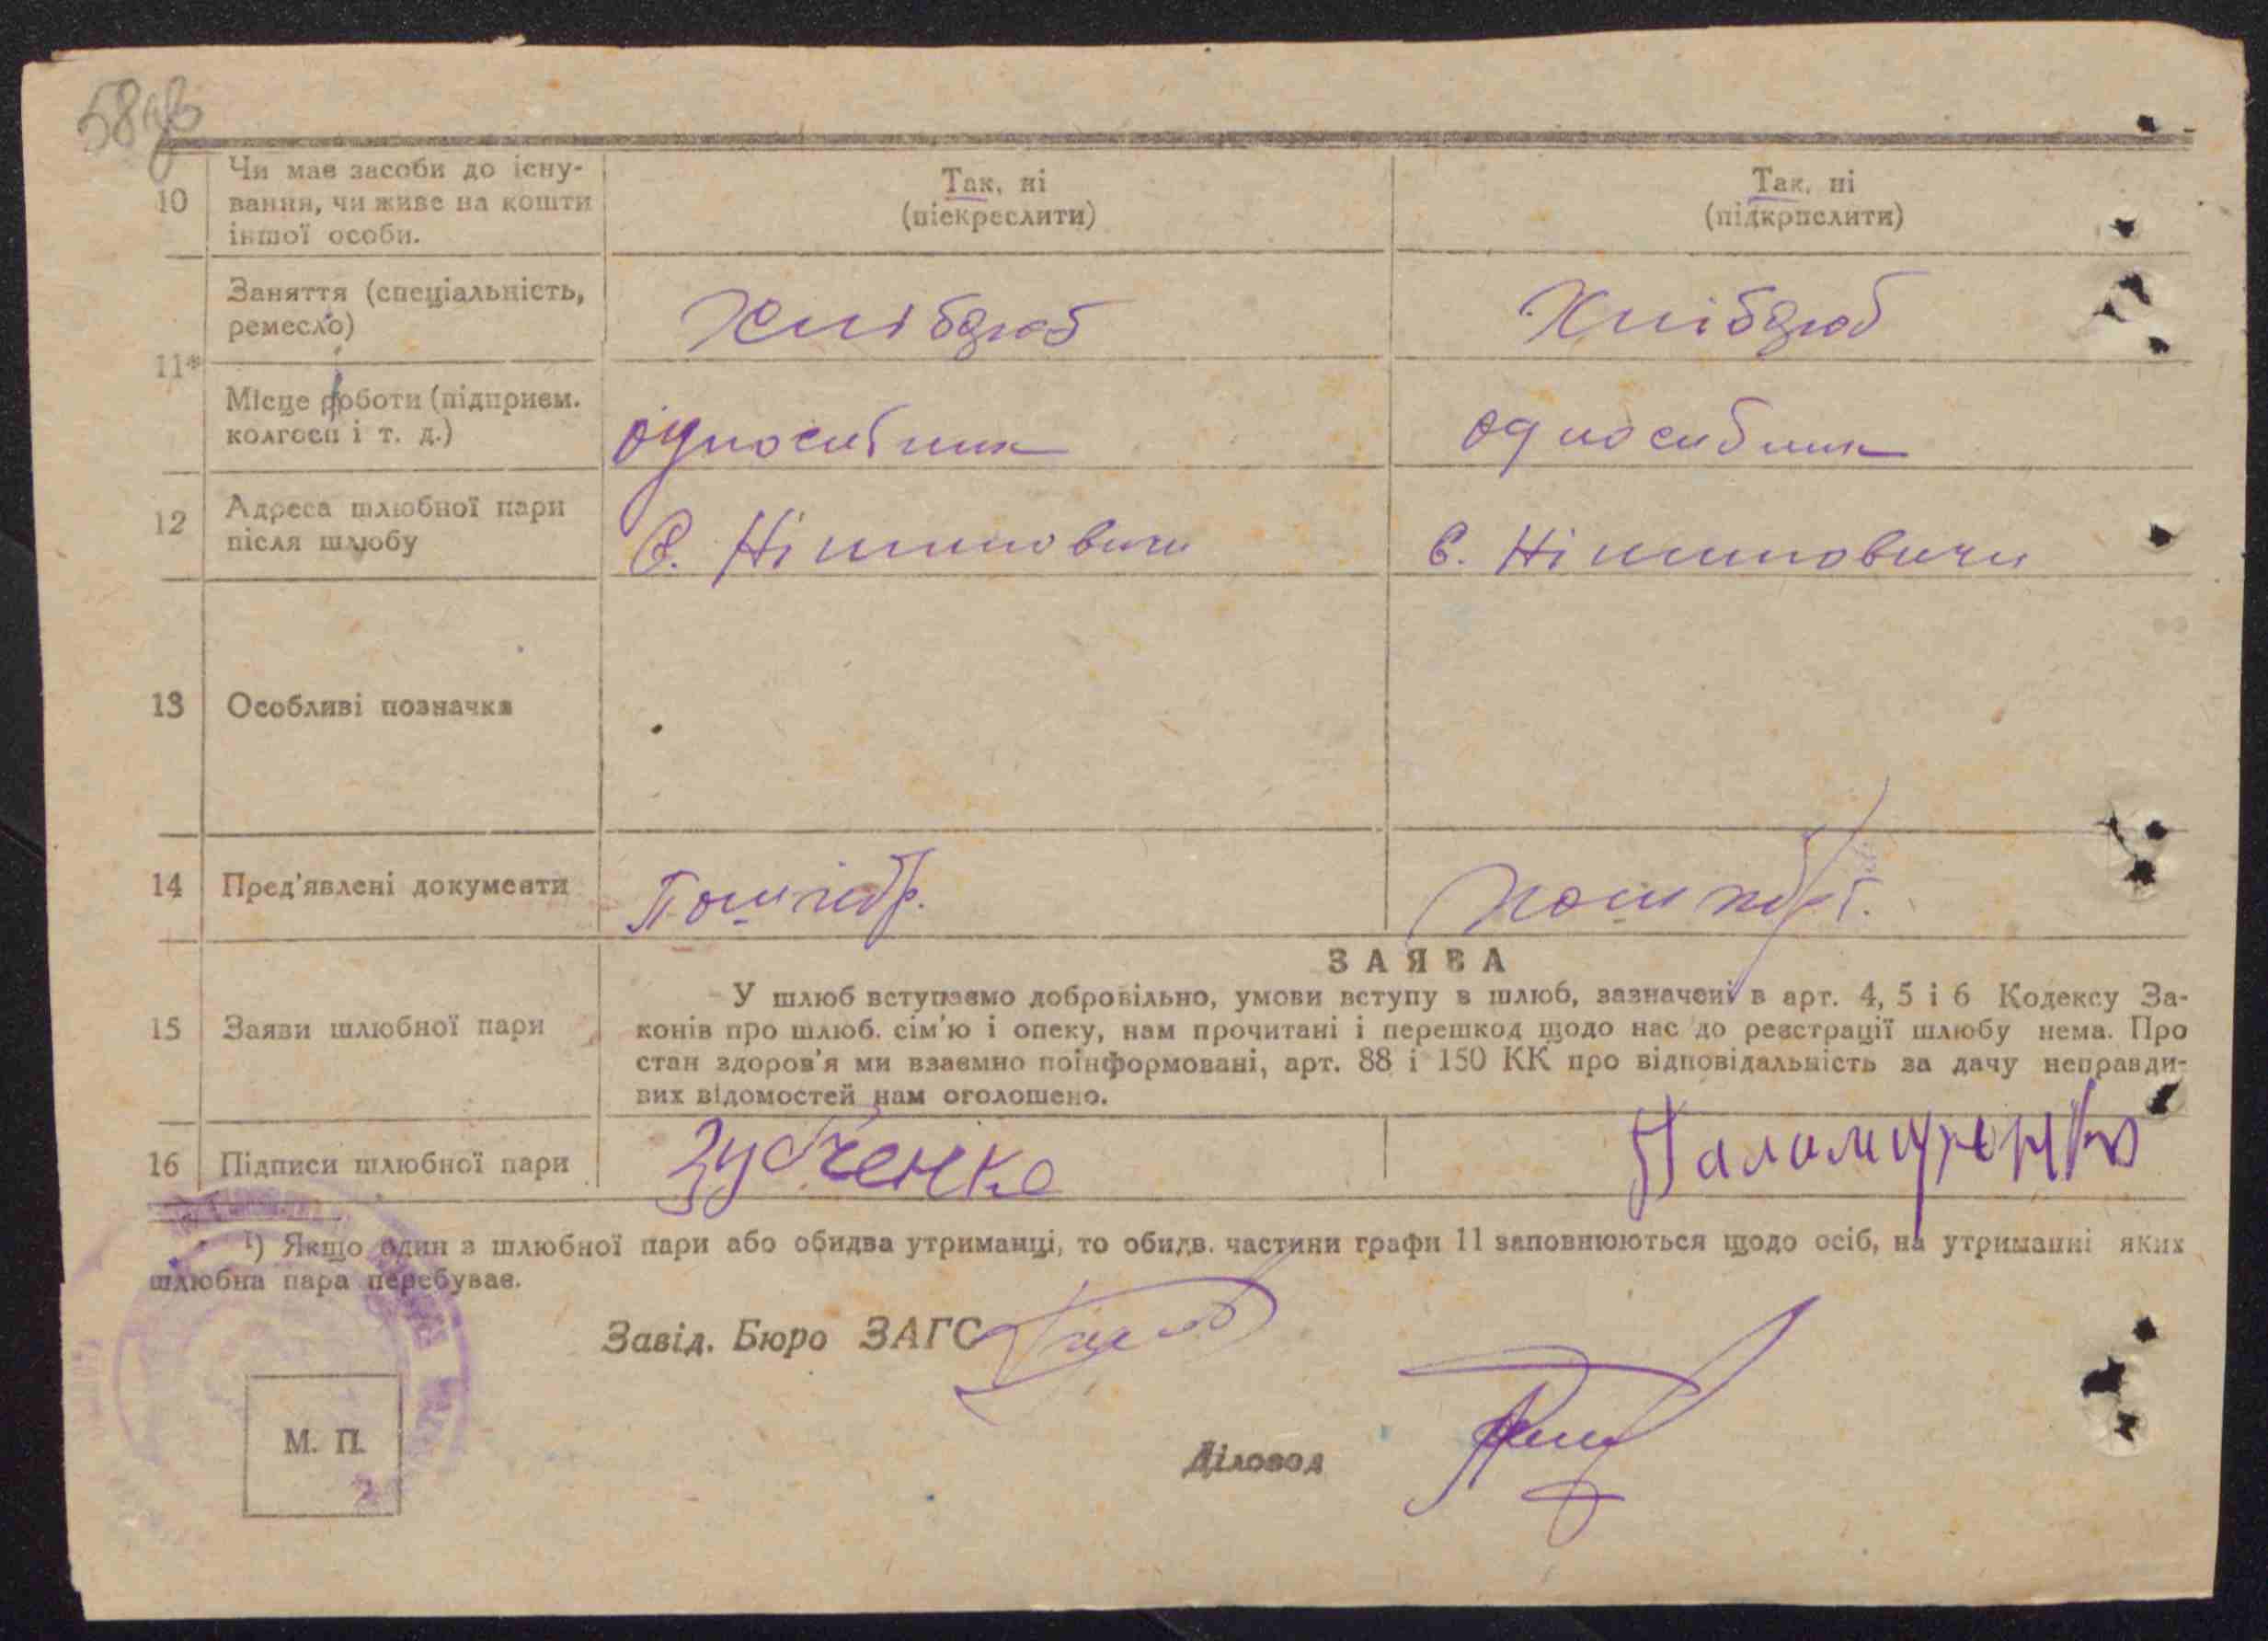 58
10
Чи має засоби до існу-
вання, чи живе на кошти
іншої особи.
Так, ні
(піекреслити)
Так, ні
(підкрпслити)
11*
Заняття (спеціальність,
ремесло)
Хлібороб
Хлібороб
Місце роботи (підприєм.
колгосп і т. д.)
односібник
односібник
12
Адреса шлюбної пари
після шлюбу
С. Ніжиловичи
С. Ніжиловичи
13
Особливі позначки
14
Пред'явлені документи
Пошпорт.
15
Заяви шлюбної пари
ЗАЯВА
У шлюб вступаємо добровільно, умови вступу в шлюб, зазначені в арт. 4, 5 і 6 Кодексу За-
конів про шлюб. сім'ю і опеку, нам прочитані і перешкод щодо нас до реєстрації шлюбу нема. Про
стан здоров'я ми взаємно поінформовані, арт. 88 і 150 КК про відповідальність за дачу неправди-
вих відомостей нам оголошено.
16
Підписи шлюбної пари
Зубченко
Паламаренко
¹) Якщо один з шлюбної пари або обидва утриманці, то обидв. частини графи 11 заповнюються щодо осіб, на утриманні яких
шлюбна пара перебуває.
Завід. Бюро ЗАГС
Діловод
М. П.